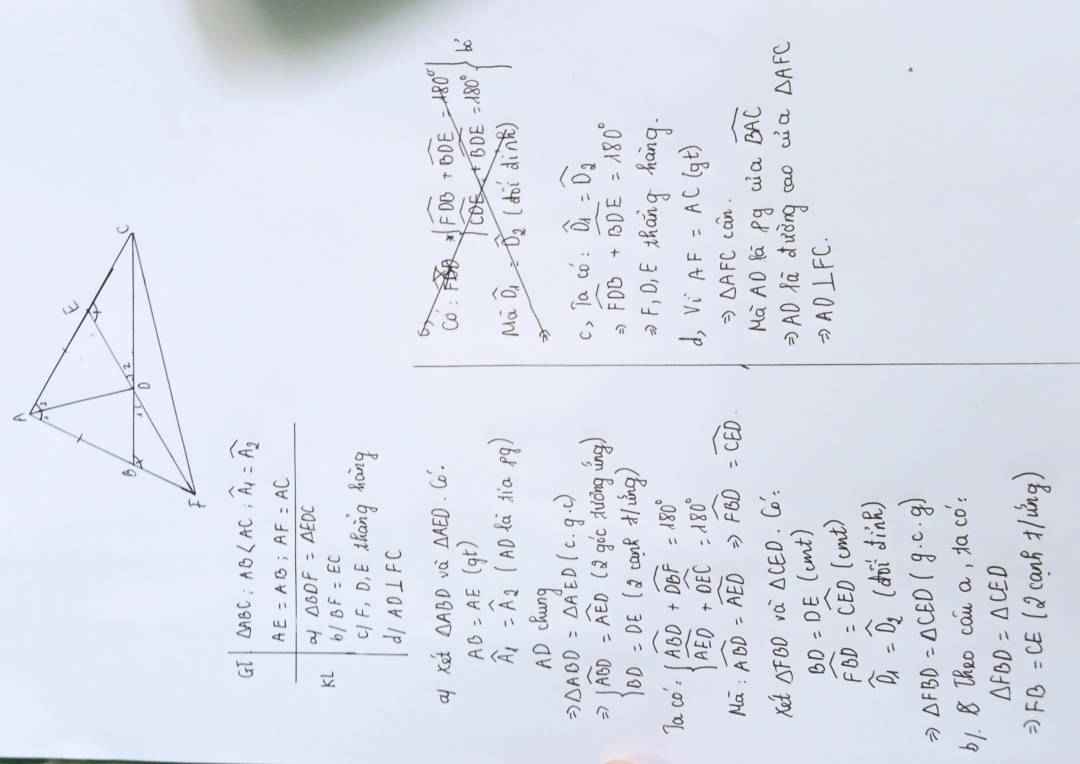 A
E
B
D
C
F
1
2
1
2
GT
ΔABC ; AB < AC ; Â1 = Â2
AE = AB ; AF = AC
KL
a/ ΔBDF = ΔEDC
b/ BF = EC
c/ F, D, E thẳng hàng
d/ AD ⊥ FC
a/ Xét ΔABD và ΔAED. Có:
AB = AE (gt)
Â1 = Â2 (AD là tia pg)
AD chung
⇒ ΔABD = ΔAED (c.g.c)
⇒ { ABD = AED (2 góc tương ứng)
BD = DE (2 cạnh t/ứng)
Ta có: { ABD + DBF = 180°
AED + DEC = 180°
Mà : ABD = AED ⇒ FBD = CED.
Xét ΔFBD và ΔCED. Có:
BD = DE (cmt)
FBD = CED (cmt)
D̂1 = D̂2 (đối đỉnh)
⇒ ΔFBD = ΔCED (g.c.g)
b/. Theo câu a, ta có:
ΔFBD = ΔCED
⇒ FB = CE (2 cạnh t/ứng)
Có : FBD { FDB + BDE = 180°
CDE + BDE = 180°
Mà D̂1 = D̂2 (đối đỉnh)
⇒
} bỏ
c, Ta có: D̂1 = D̂2
⇒ FDB + BDE = 180°
⇒ F, D, E thẳng hàng.
d, Vì AF = AC (gt)
⇒ ΔAFC cân.
Mà AD là pg của BAC
⇒ AD là đường cao của ΔAFC
⇒ AD ⊥ FC.